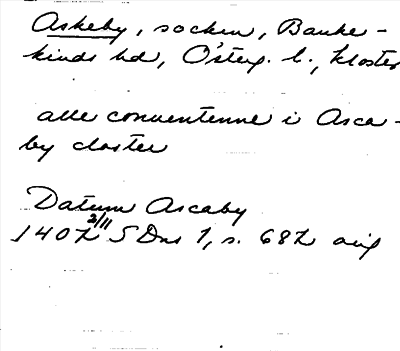 Askeby, socken, Banke-
kinds hd, Österg. l., kloster
alle conuentenne i Asca-
by closter
Datum Ascaby
2/11
1402 SDns 1, s. 682 avs